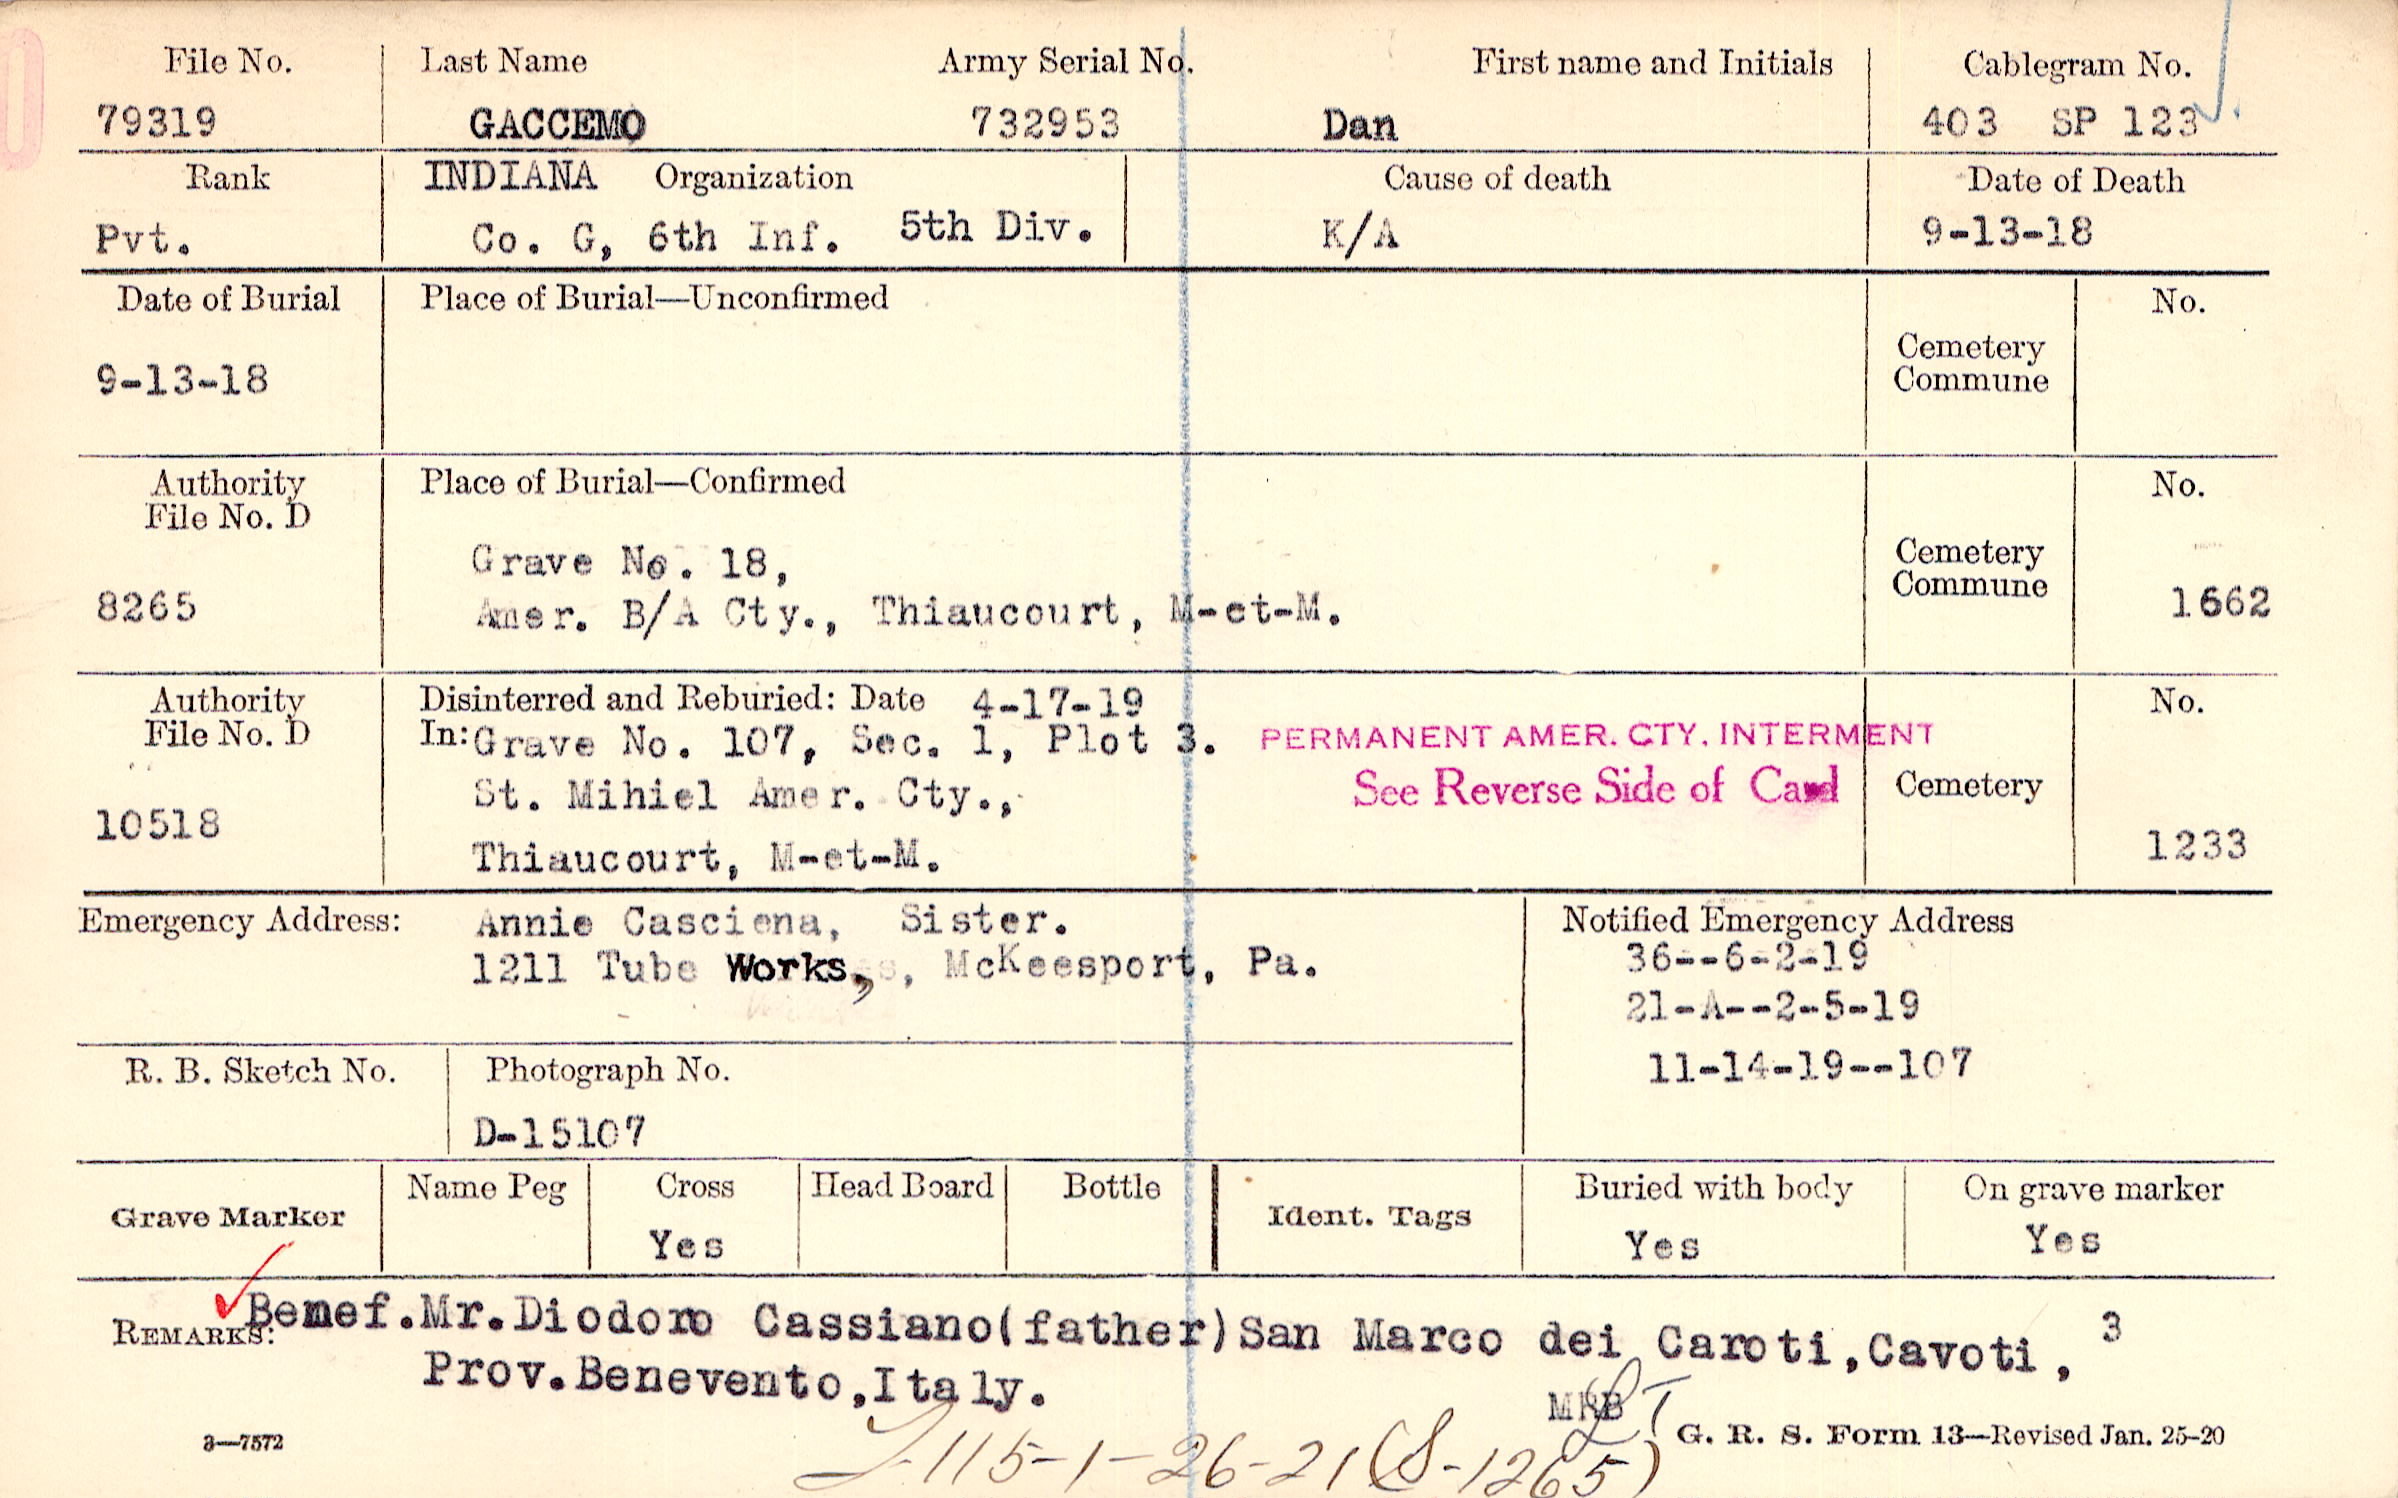 File No. Last Name Army Serial No. First name and Initials Cablegram No.
79319 GACCEMO 732953 Dan 403 SP 123
Rank INDIANA Organization Cause of death Date of Death
Pvt. Co. G, 6th Inf. 5th Div. K/A 9-13-18
Date of Burial Place of Burial—Unconfirmed No.
Cemetery
Commune
9-13-18
Authority Place of Burial—Confirmed No.
File No. D
Grave No. 18, Cemetery
Commune
8265 Amer. B/A Cty., Thiaucourt, M-et-M. 1662
Authority Disinterred and Reburied: Date 4-17-19 No.
File No. D In: Grave No. 107, Sec. 1, Plot 3. PERMANENT AMER. CTY. INTERMENT
St. Mihiel Amer. Cty., See Reverse Side of Card Cemetery
10518 Thiaucourt, M-et-M. 1233
Emergency Address: Annie Casciena, Sister. Notified Emergency Address
1211 Tube Works, McKeesport, Pa. 36--6-2-19
21-A--2-5-19
R. B. Sketch No. Photograph No. 11-14-19--107
D-15107
Grave Marker Name Peg Cross Head Board Bottle Ident. Tags Buried with body On grave marker
Yes Yes Yes
REMARKS: Benef.Mr.Diodoro Cassiano(father)San Marco dei Caroti,Cavoti, 3
Prov.Benevento,Italy.
MRB
3—7572 G. R. S. Form 13—Revised Jan. 25-20
115-1-26-21(S-1265)